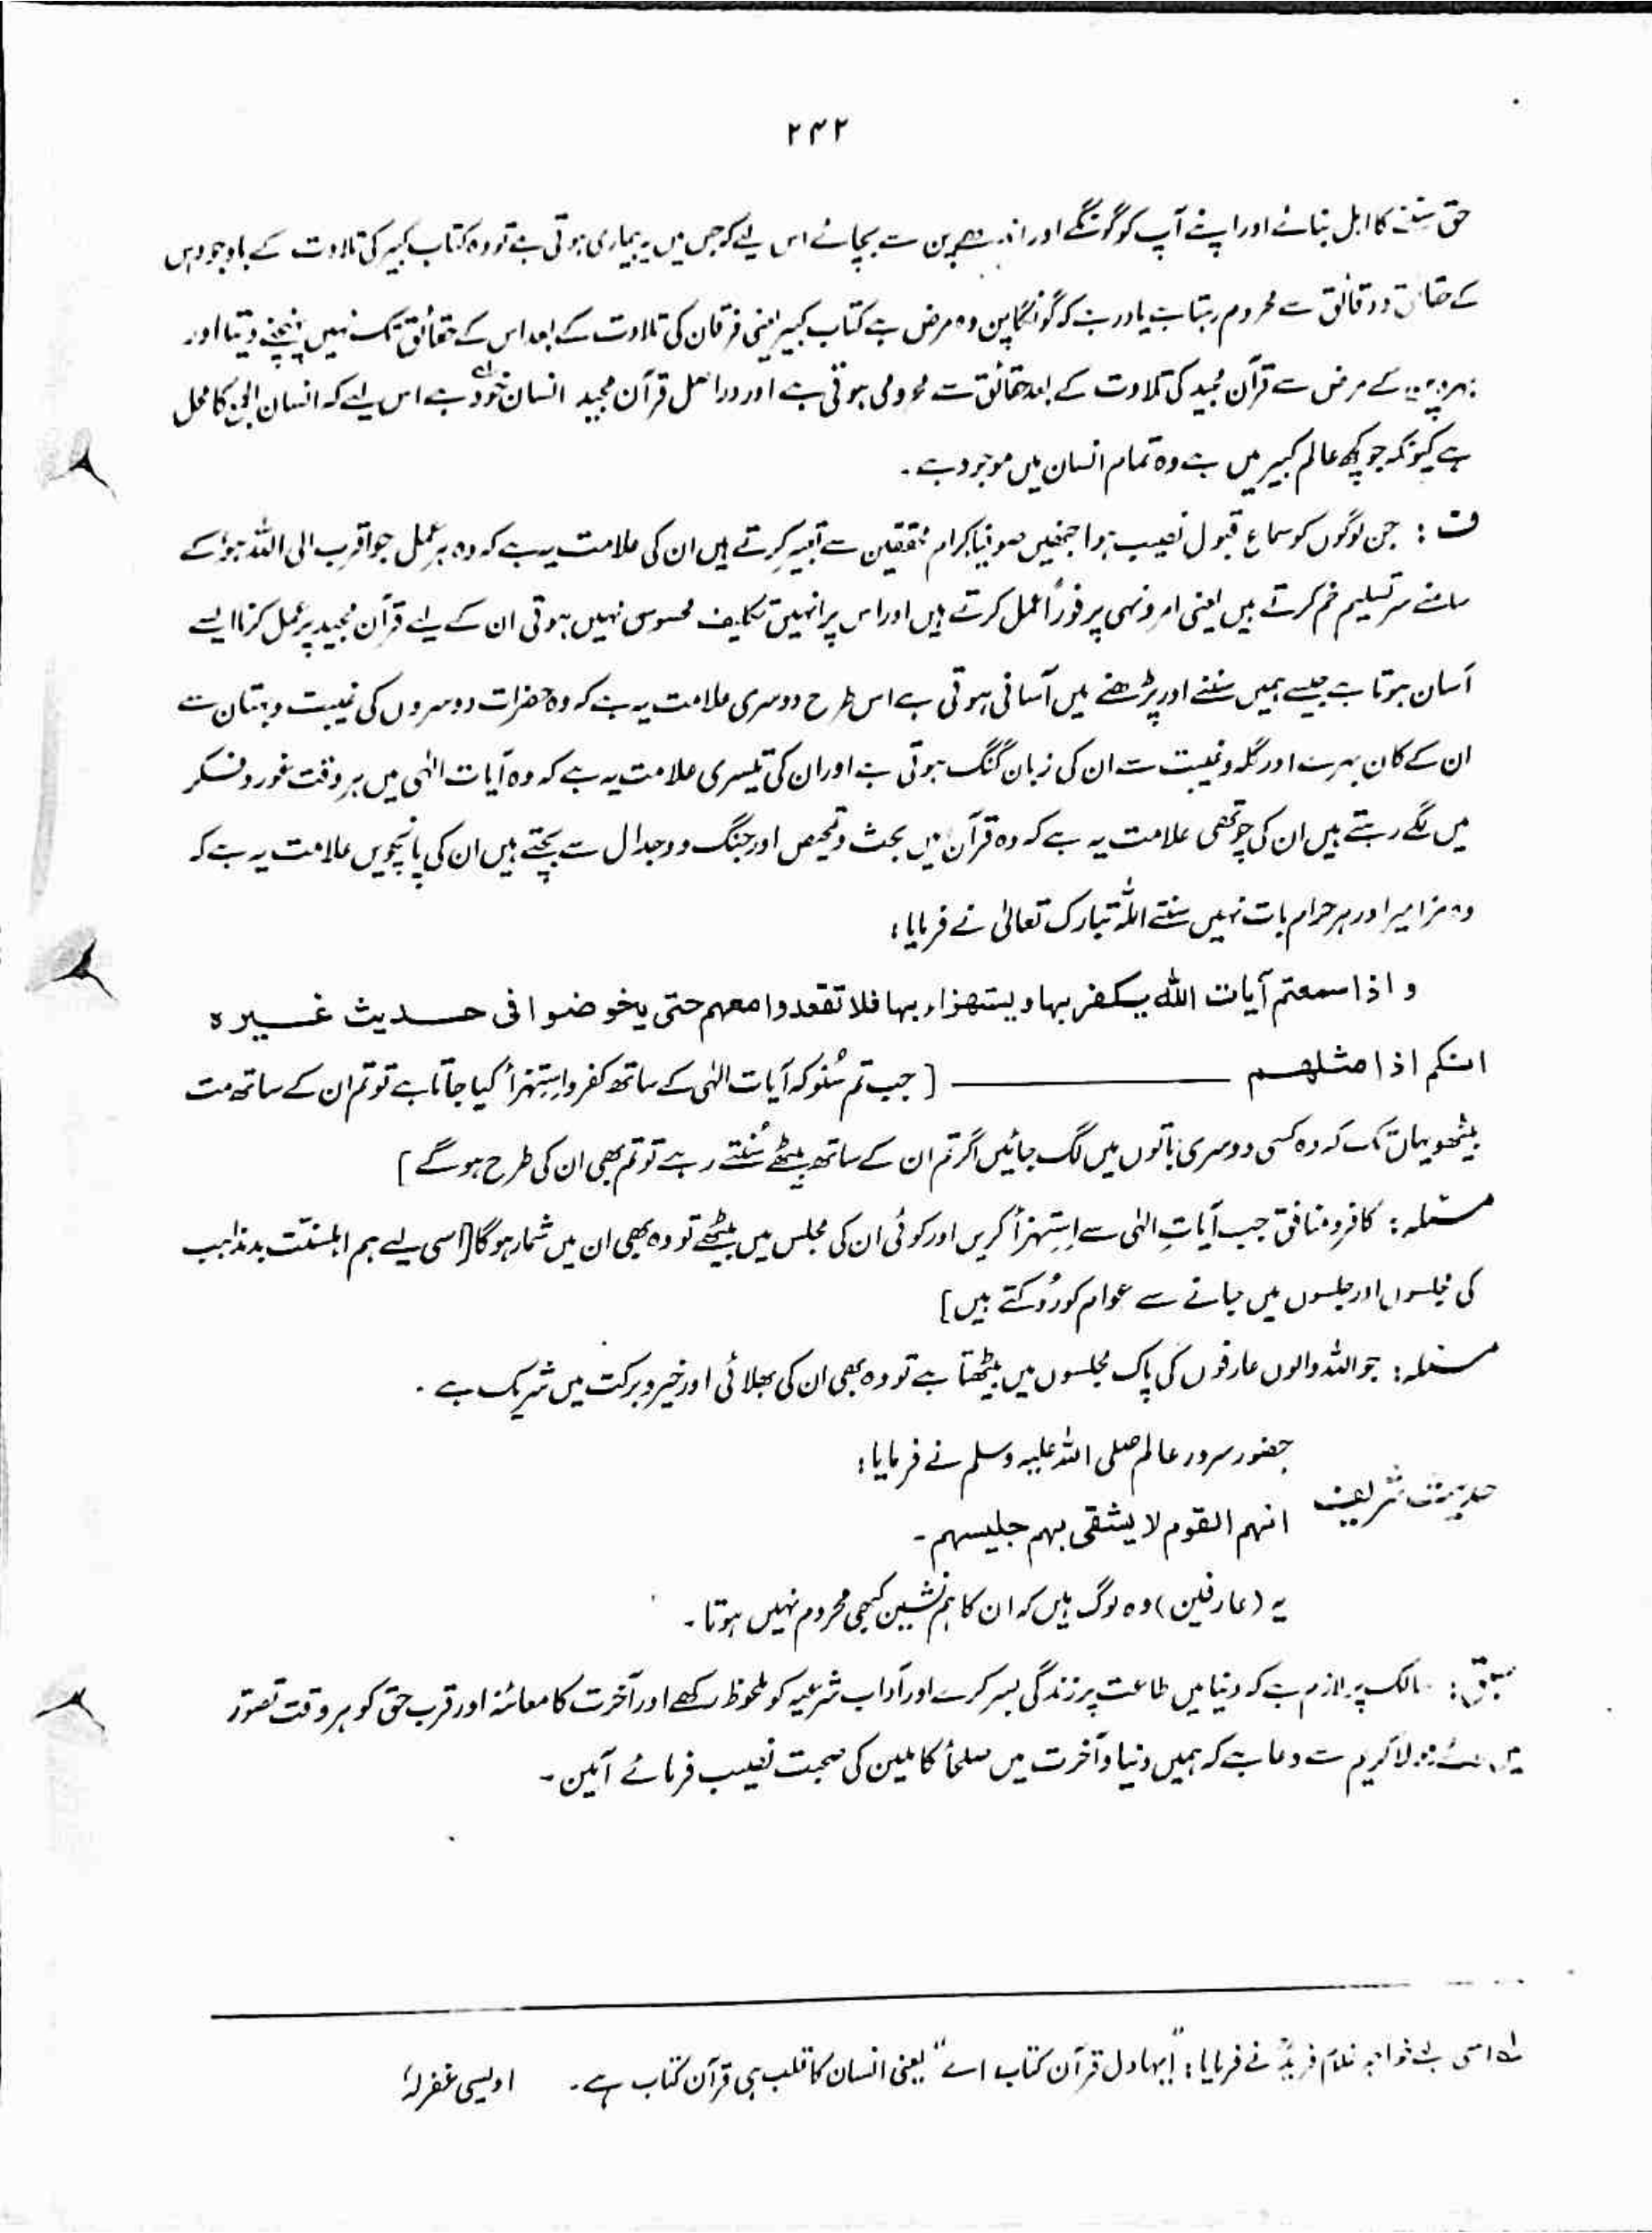 ۲۴۲
حق سننے کا اہل بنائے اور اپنے آپ کو گونگے اور اندھے پن سے بچائے اس لیے کہ جس میں یہ بیماری ہوتی ہے تو وہ کتاب کبیر کی تلاوت کے باوجود اس
کے حقائق و دقائق سے محروم رہتا ہے یاد رہے کہ گونگا پن وہ مرض ہے کتاب کبیر یعنی فرقان کی تلاوت کے بعد اس کے حقائق تک نہیں پہنچنے دیتا اور
بہرہ پن کے مرض سے قرآن مجید کی تلاوت کے بعد حقائق سے محرومی ہوتی ہے اور دراصل قرآن مجید انسان خود ہے اس لیے کہ انسان الجمع کا محل
ہے کیونکہ جو کچھ عالم کبیر میں ہے وہ تمام انسان میں موجود ہے ۔
ف : جن لوگوں کو سماع قبول نصیب ہوا جنھیں صوفیا کرام محققین سے تعبیر کرتے ہیں ان کی علامت یہ ہے کہ وہ ہر عمل جو اقرب الی اللہ ہو اس کے
سامنے سر تسلیم خم کرتے ہیں یعنی امر و نہی پر فوراً عمل کرتے ہیں اور اس پر انہیں تکلیف محسوس نہیں ہوتی ان کے لیے قرآن مجید پر عمل کرنا ایسے
آسان ہوتا ہے جیسے ہمیں سننے اور پڑھنے میں آسانی ہوتی ہے اس طرح دوسری علامت یہ ہے کہ وہ حضرات دوسروں کی غیبت و بہتان سے
ان کے کان بہرے اور گلہ و غیبت سے ان کی زبان گنگ ہوتی ہے اور ان کی تیسری علامت یہ ہے کہ وہ آیات الٰہی میں ہر وقت غور و فکر
میں لگے رہتے ہیں ان کی چوتھی علامت یہ ہے کہ وہ قرآن میں بحث و تمحیص اور جنگ و جدال سے بچتے ہیں ان کی پانچویں علامت یہ ہے کہ
وہ مزامیر اور ہر حرام بات نہیں سنتے اللہ تبارک تعالیٰ نے فرمایا :
و اذا سمعتم آیات اللہ یکفر بہا ویستھزاء بہا فلا تقعدوا معہم حتی یخوضوا فی حدیث غیرہ
انکم اذا مثلھم ——— [ جب تم سُنو کہ آیات الٰہی کے ساتھ کفر و اِستہزأ کیا جاتا ہے تو تم ان کے ساتھ مت
بیٹھو یہاں تک کہ وہ کسی دوسری باتوں میں لگ جائیں اگر تم ان کے ساتھ بیٹھے سُنتے رہے تو تم بھی ان کی طرح ہو گے ]
مسئلہ : کافر و منافق جب آیاتِ الٰہی سے اِستہزأ کریں اور کوئی ان کی مجلس میں بیٹھے تو وہ بھی ان میں شمار ہوگا [اسی لیے ہم اہلسنّت بدمذاہب
کی مجلسوں اور جلسوں میں جانے سے عوام کو روکتے ہیں]
مسئلہ : جو اللہ والوں عارفوں کی پاک مجلسوں میں بیٹھتا ہے تو وہ بھی ان کی بھلائی اور خیر و برکت میں شریک ہے ۔
حضور سرور عالم صلی اللہ علیہ وسلم نے فرمایا :
حدیث شریف
انہم القوم لا یشقی بہم جلیسہم ۔
یہ (عارفین) وہ لوگ ہیں کہ ان کا ہم نشین کبھی محروم نہیں ہوتا ۔
سبق : سالک پر لازم ہے کہ دنیا میں طاعت پر زندگی بسر کرے اور آداب شرعیہ کو ملحوظ رکھے اور آخرت کا معائنہ اور قرب حق کو ہر وقت تصوّر
میں مولا کریم سے دعا ہے کہ ہمیں دنیا و آخرت میں صلحأ کاملین کی صحبت نصیب فرمائے آمین ۔
لے اسی لیے خواجہ غلام فرید نے فرمایا : "ایہا دل قرآن کتاب اے" یعنی انسان کا قلب ہی قرآن کتاب ہے ۔ اویسی غفرلہٗ